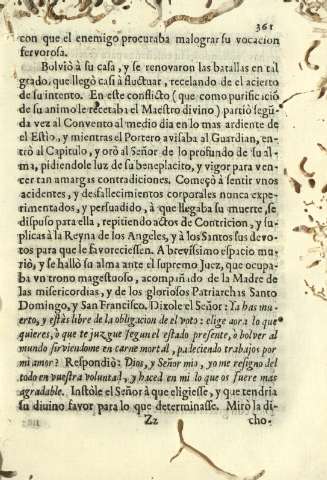 361
con que el enemigo procuraba malograr su vocacion
fervorosa.
Bolviò à su casa, y se renovaron las batallas en tal
grado, que llegò casi à fluctuar, recelando de el acierto
de su intento. En este conflicto (que como purificació
de su animo le recetaba el Maestro divino) partiò segũ-
da vez al Convento al medio dia en lo mas ardiente de
el Estio, y mientras el Portero avisaba al Guardian, en-
trò al Capitulo, y orò al Señor de lo profundo de su al-
ma, pidiendole luz de su beneplacito, y vigor para ven-
cer tan amargas contradiciones. Começò à sentir vnos
acidentes, y desfallecimientos corporales nunca expe-
rimentados, y persuadido, à que llegaba su muerte, se
dispuso para ella, repitiendo actos de Contricion, y su-
plicas à la Reyna de los Angeles, y à los Santos sus devo-
tos para que le favoreciessen. A brevissimo espacio mu-
riò, y se hallò su alma ante el supremo Juez, que ocupa-
ba vn trono magestuoso, acompañado de la Madre de
las misericordias, y de los gloriosos Patriarchas Santo
Domingo, y San Francisco. Dixole el Señor: Ya has mu-
erto, y estàs libre de la obligacion de el voto: elige aora lo que
quieres, ò que te juzgue segun el estado presente, ò bolver al
mundo sirviendome en carne mortal, padeciendo trabajos por
mi amor? Respondiò: Dios, y Señor mio, yo me resigno del
todo en vuestra voluntad, y haced en mi lo que os fuere mas
agradable. Instòle el Señor à que eligiesse, y que tendria
su divino favor para lo que determinasse. Mirò la di-
Zz
cho-